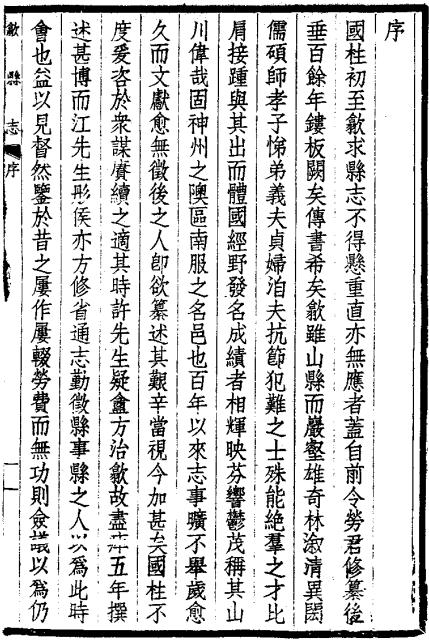 序
國柱初至歙求縣志不得懸重直亦無應者蓋自前令勞君修纂後
垂百餘年鏤板闕矣傳書希矣歙雖山縣而巖壑雄奇林漵清異閎
儒碩師孝子悌弟義夫貞婦洎夫抗節犯難之士殊能絶羣之才比
肩接踵與其出而體國經野發名成績者相輝映芬響鬱茂稱其山
川偉哉固神州之隩區南服之名邑也百年以來志事曠不舉歲愈
久而文獻愈無徵後之人卽欲纂述其艱辛當視今加甚矣國柱不
度爰咨於衆謀賡續之適其時許先生疑盦方治歙故盡五年撰
述甚博而江先生彤侯亦方修省通志勤徵縣事縣之人以爲此時
會也益以見督然鑒於昔之屢作屢輟勞費而無功則僉議以爲仍
歙縣志
序